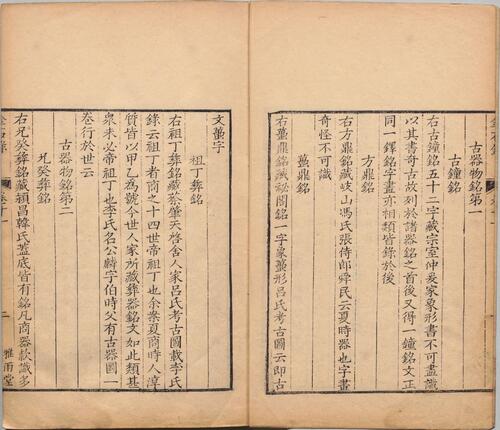 古器物銘第一
古鐘銘
右古鐘銘五十二字藏宗室仲爰家象形書不可盡識
以其書奇古故列於諸器銘之首後又得一鐘銘文正
同一鐸銘字畫亦相類皆錄於後
方鼎銘
右方鼎銘藏岐山馮氏張侍郎舜民云夏時器也字畫
奇怪不可識
蠆鼎銘
右蠆鼎銘藏祕閣銘一字象蠆形呂氏考古圖云即古
文蠆字
祖丁彝銘
右祖丁彝銘藏蔡肇天啓舍人家呂氏考古圖載李氏
錄云祖丁者商之十四世帝祖丁也余案夏商時人淳
質皆以甲乙為號今世人家所藏彝器銘文如此類甚
衆未必帝祖丁也李氏名公麟字伯時父有古器圖一
卷行於世云
古器物銘第二
兄癸彝銘
右兄癸彝銘藏潁昌韓氏蓋底皆有銘凡商器款識多
金石錄
卷十一
二
雅雨堂